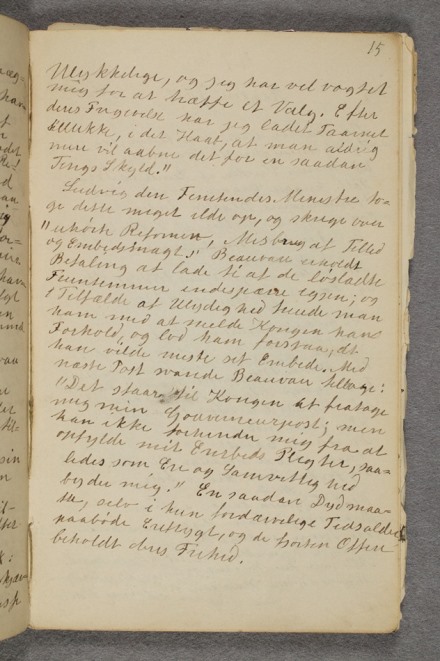 15
Ulykkelige, og jeg har vel vogtet
mig for at træffe et Valg. Efter
deres Frigivelse har jeg ladet Taarnet
lukke, i det Haab, at man aldrig
mere vil aabne det for en saadan
Tings Skyld."
Ludvig den Femtendes Ministre to-
ge dette meget ilde op, og skrege over
"uhørte Reformer, Misbrug at Tillid
og Embedsmagt." Beauvau erholdt
Befaling at lade ti af de løsladte
Fruentimmer indespærre igjen; og
i Tilfælde af Ulydighed truede man
ham med at melde Kongen hans
Forhold, og lod ham forstaa, at
han vilde miste sit Embede. Med
næste Post svarede Beauvau tilbage:
"Det staar til Kongen at fratage
mig min Gouverneurpost; men
han ikke forhindre mig fra at
opfylde mit Embeds Pligter, saa-
ledes som Ære og Samvittighed
byder mig." En saadan Dydmaa-
te, selv i hin fordærvelige Tidsalder
indbøde Ærefrygt, og de fjorten Offere
beholdt deres Frihed.